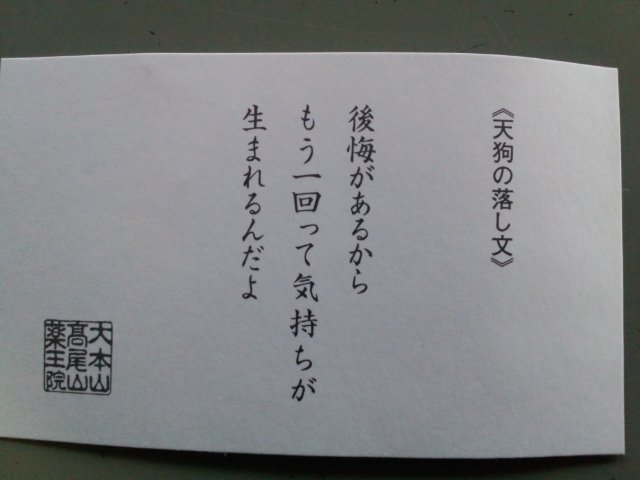 《天狗の落し文》
後悔があるから
もう一回って気持ちが
生まれるんだよ
大本山
髙尾山
薬王院